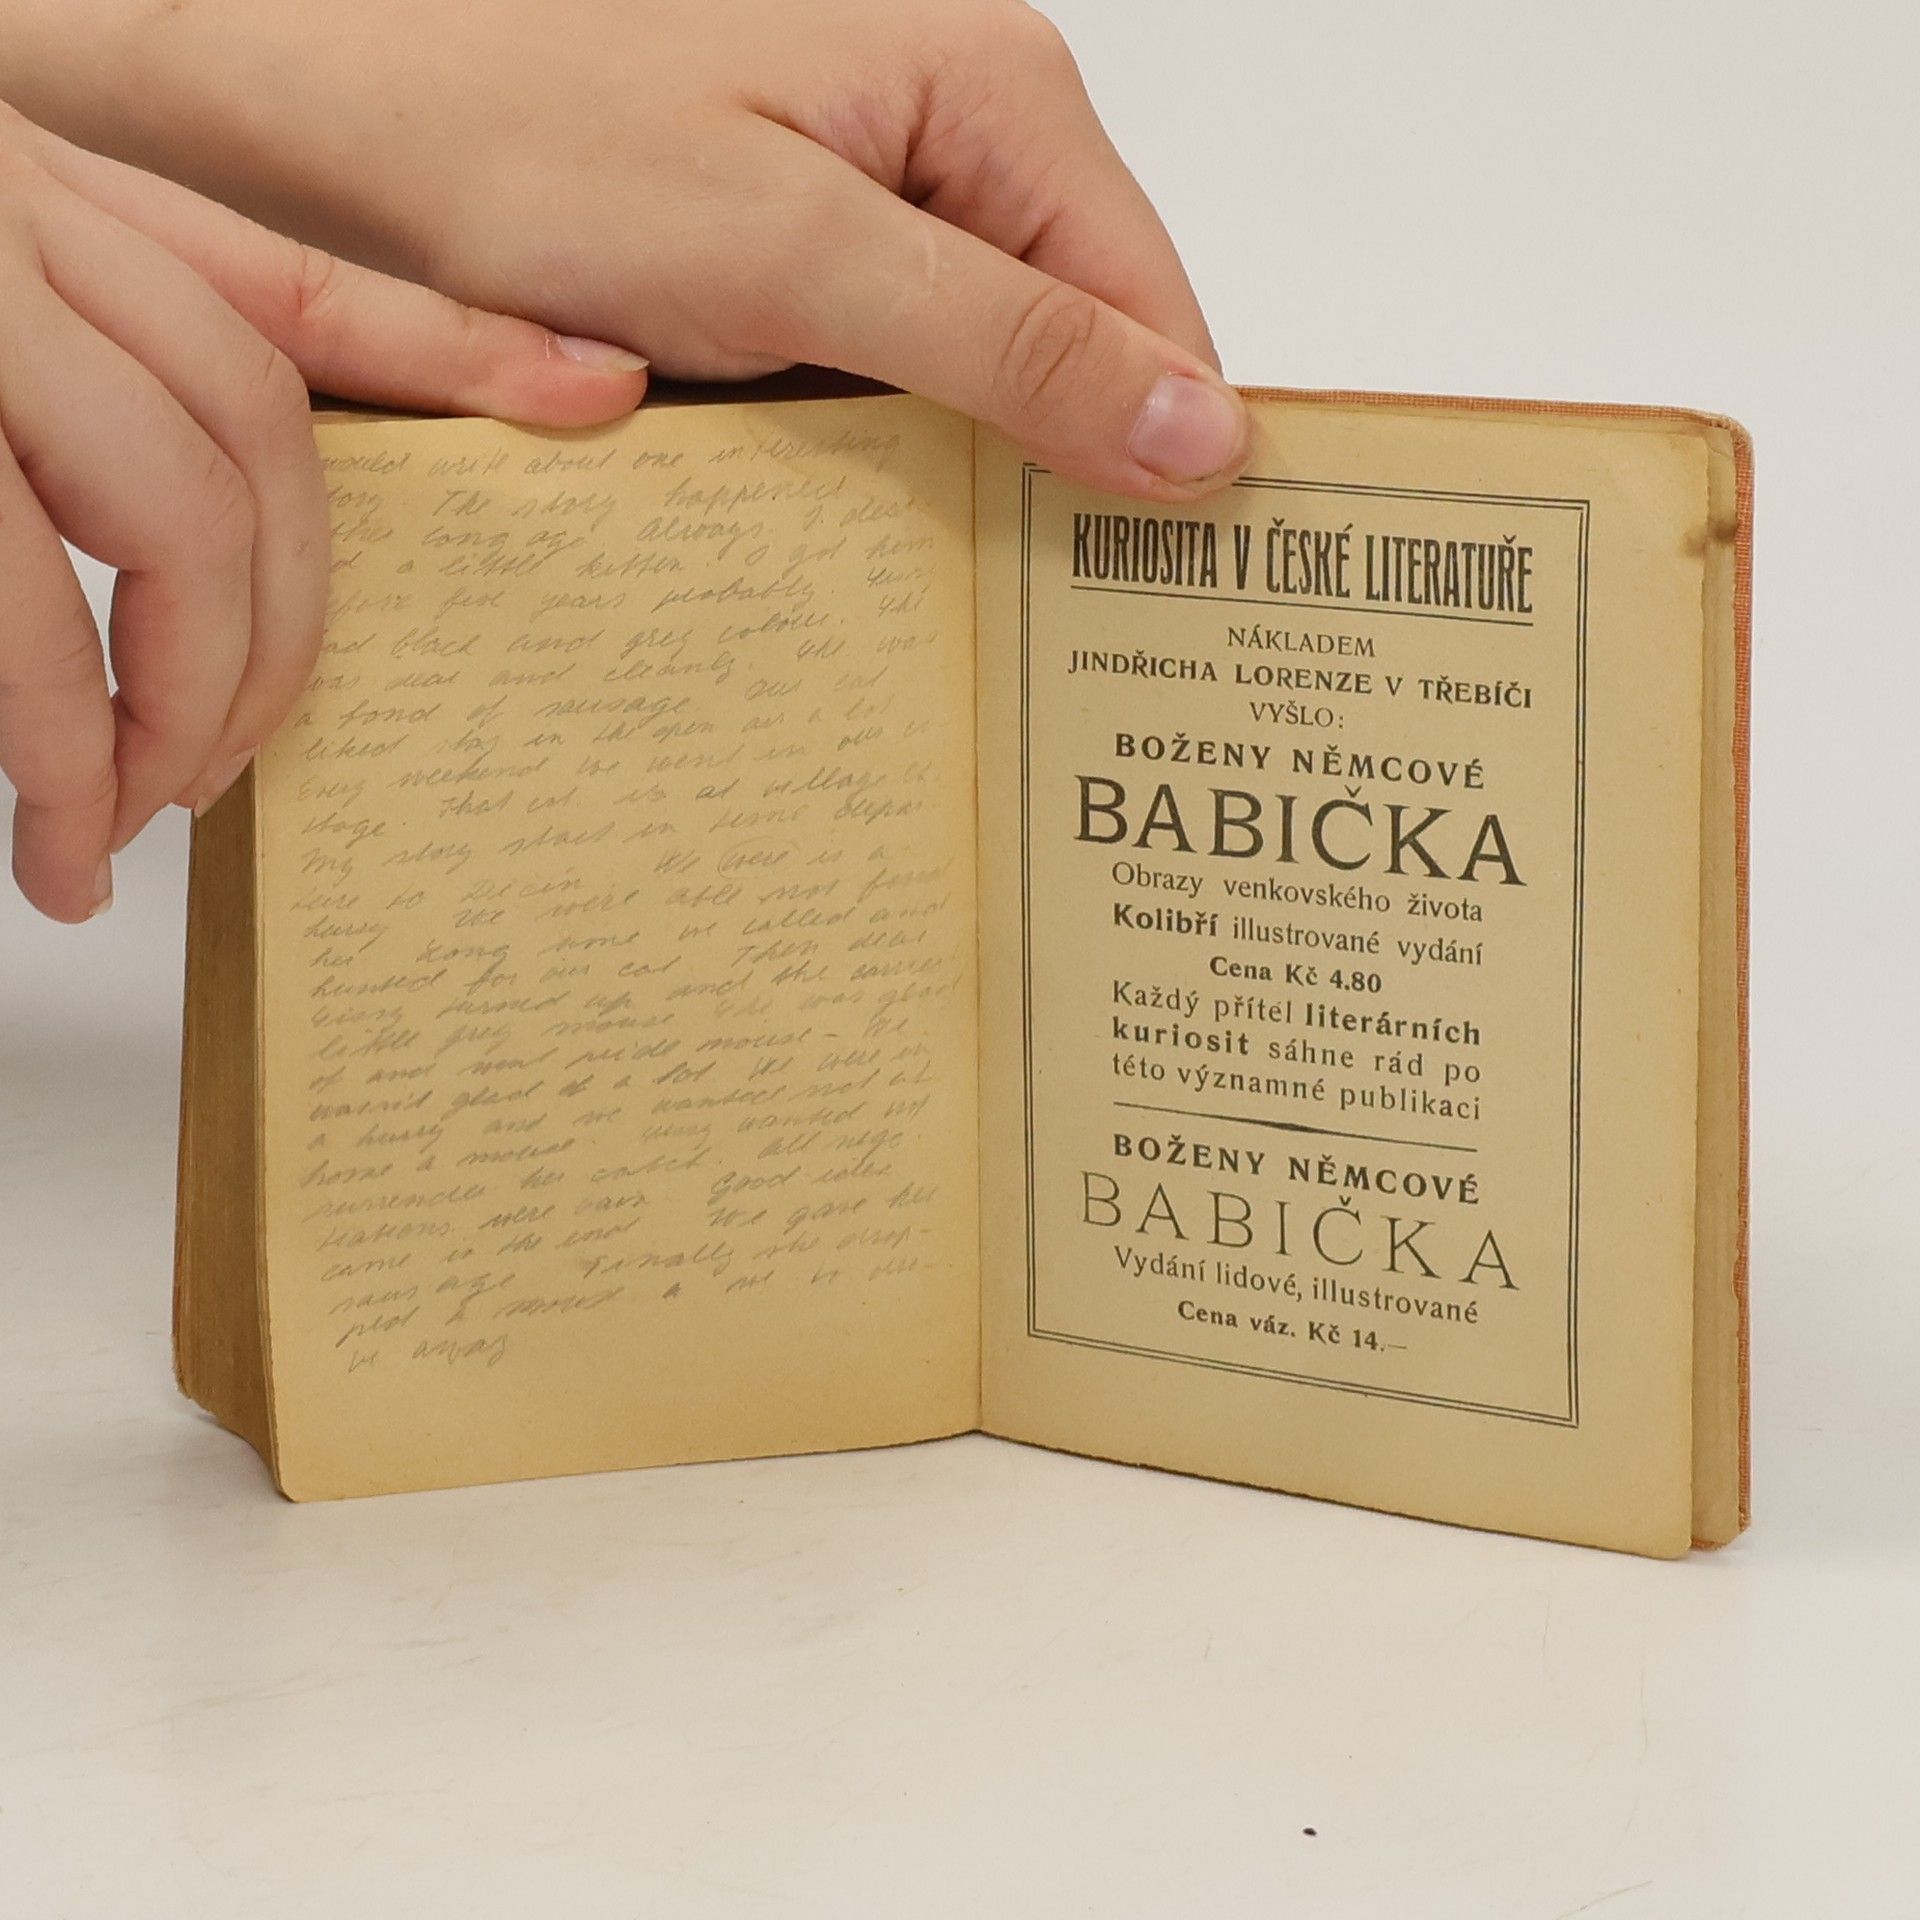 would write about one interesting
story. The story happened
long ago. Always I
a little kitten. I got him
before five years probably.
had black and grey colour. She
was and cleanly. She was
a fond of sausage. Our cat
liked stay in the open air a lot
Every weekend we went in our co-
ttage. That is at village
My story start in time depar-
ture to Děčín. We were is a
hurry. We were able not found
her. Long time we called and
hunted for our cat. Then dear
turned up and she carried
little grey mouse. She was glad
of and went mouse - We
wasn't glad of a lot. We were in
a hurry and we wanted not at
home a mouse. wanted not
surrender her catch. All nego-
tiations were vain. Good idea
came in the end. We gave her
sausage. Finally she drop-
ped a mouse a we
ve away
KURIOSITA V ČESKÉ LITERATUŘE
NÁKLADEM
JINDŘICHA LORENZE V TŘEBÍČI
VYŠLO:
BOŽENY NĚMCOVÉ
BABIČKA
Obrazy venkovského života
Kolibří illustrované vydání
Cena Kč 4.80
Každý přítel literárních
kuriosit sáhne rád po
této významné publikaci
BOŽENY NĚMCOVÉ
BABIČKA
Vydání lidové, illustrované
Cena váz. Kč 14.—